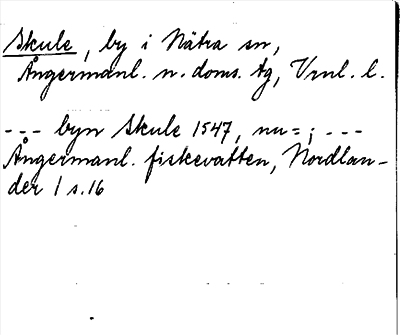 Skule, by i Nätra sn,
Ångermanl. n. doms. tg, Vrnl. l.
--- byn Skule 1547, nu=; ---
Ångermanl. fiskevatten, Nordlan-
der 1 s.16